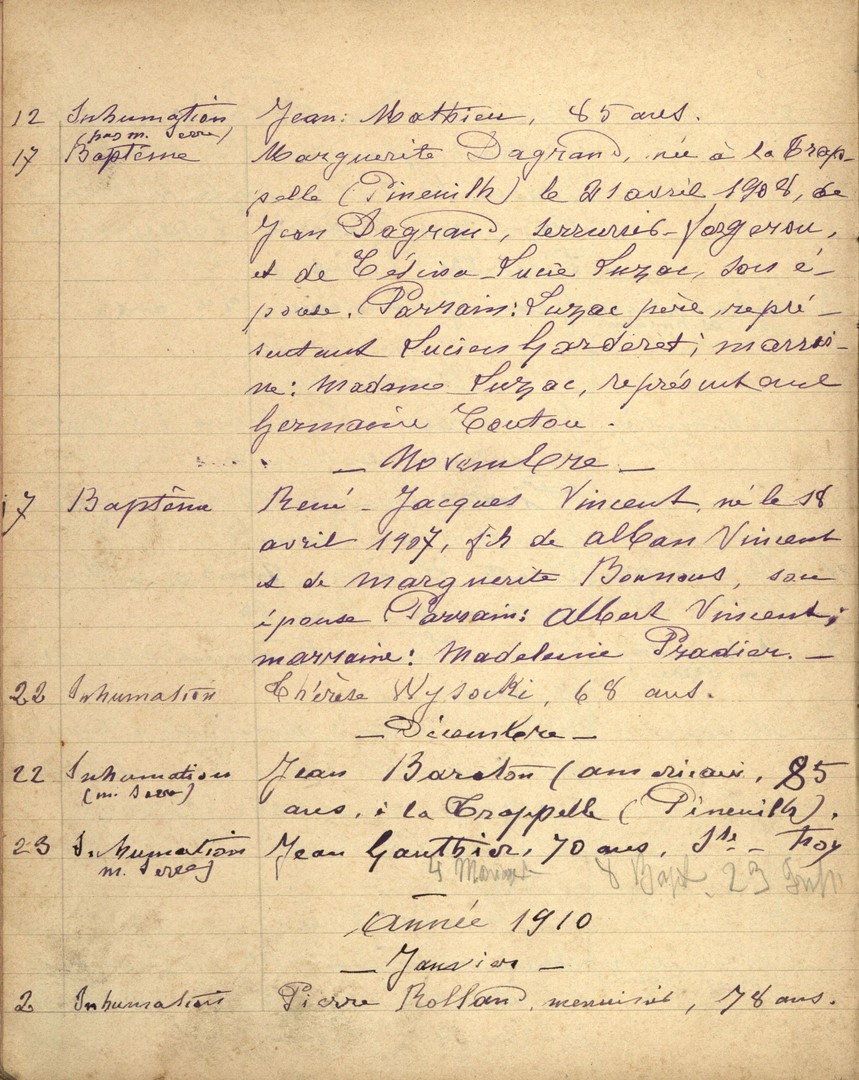 12 Inhumation Jean: Mathieu, 85 ans.
(par m. Serre)
17 Baptême Marguerite Dagrand, née à la Trap-
pelle (Pineuilh) le 21 avril 1908, de
Jean Dagrand, serrurier-forgeron,
et de Lucie Luzac, son é-
pouse. Parrain: Luzac père, repré-
sentant Lucien Garderet; marrai-
ne: Madame Luzac, représentant
Germaine Touton.
— Novembre —
17 Baptême René-Jacques Vincent, né le 18
avril 1907, fils de Alban Vincent
et de Marguerite Bonnous, son
épouse Parrain: Albert Vincent;
marraine: Madeleine Pradier. —
22 Inhumation Thérèse Wysocki, 68 ans.
— Décembre —
22 Inhumation Jean Barcton (américain, 85
(m. Serre) ans, à la Trappelle (Pineuilh).
23 Inhumation Jean Gauthier, 70 ans, Ste-Foy
m. Serres
4 Mariages 8 Bapt. 23 Inh
Année 1910
— Janvier —
2 Inhumation Pierre Rolland, menuisier, 78 ans.